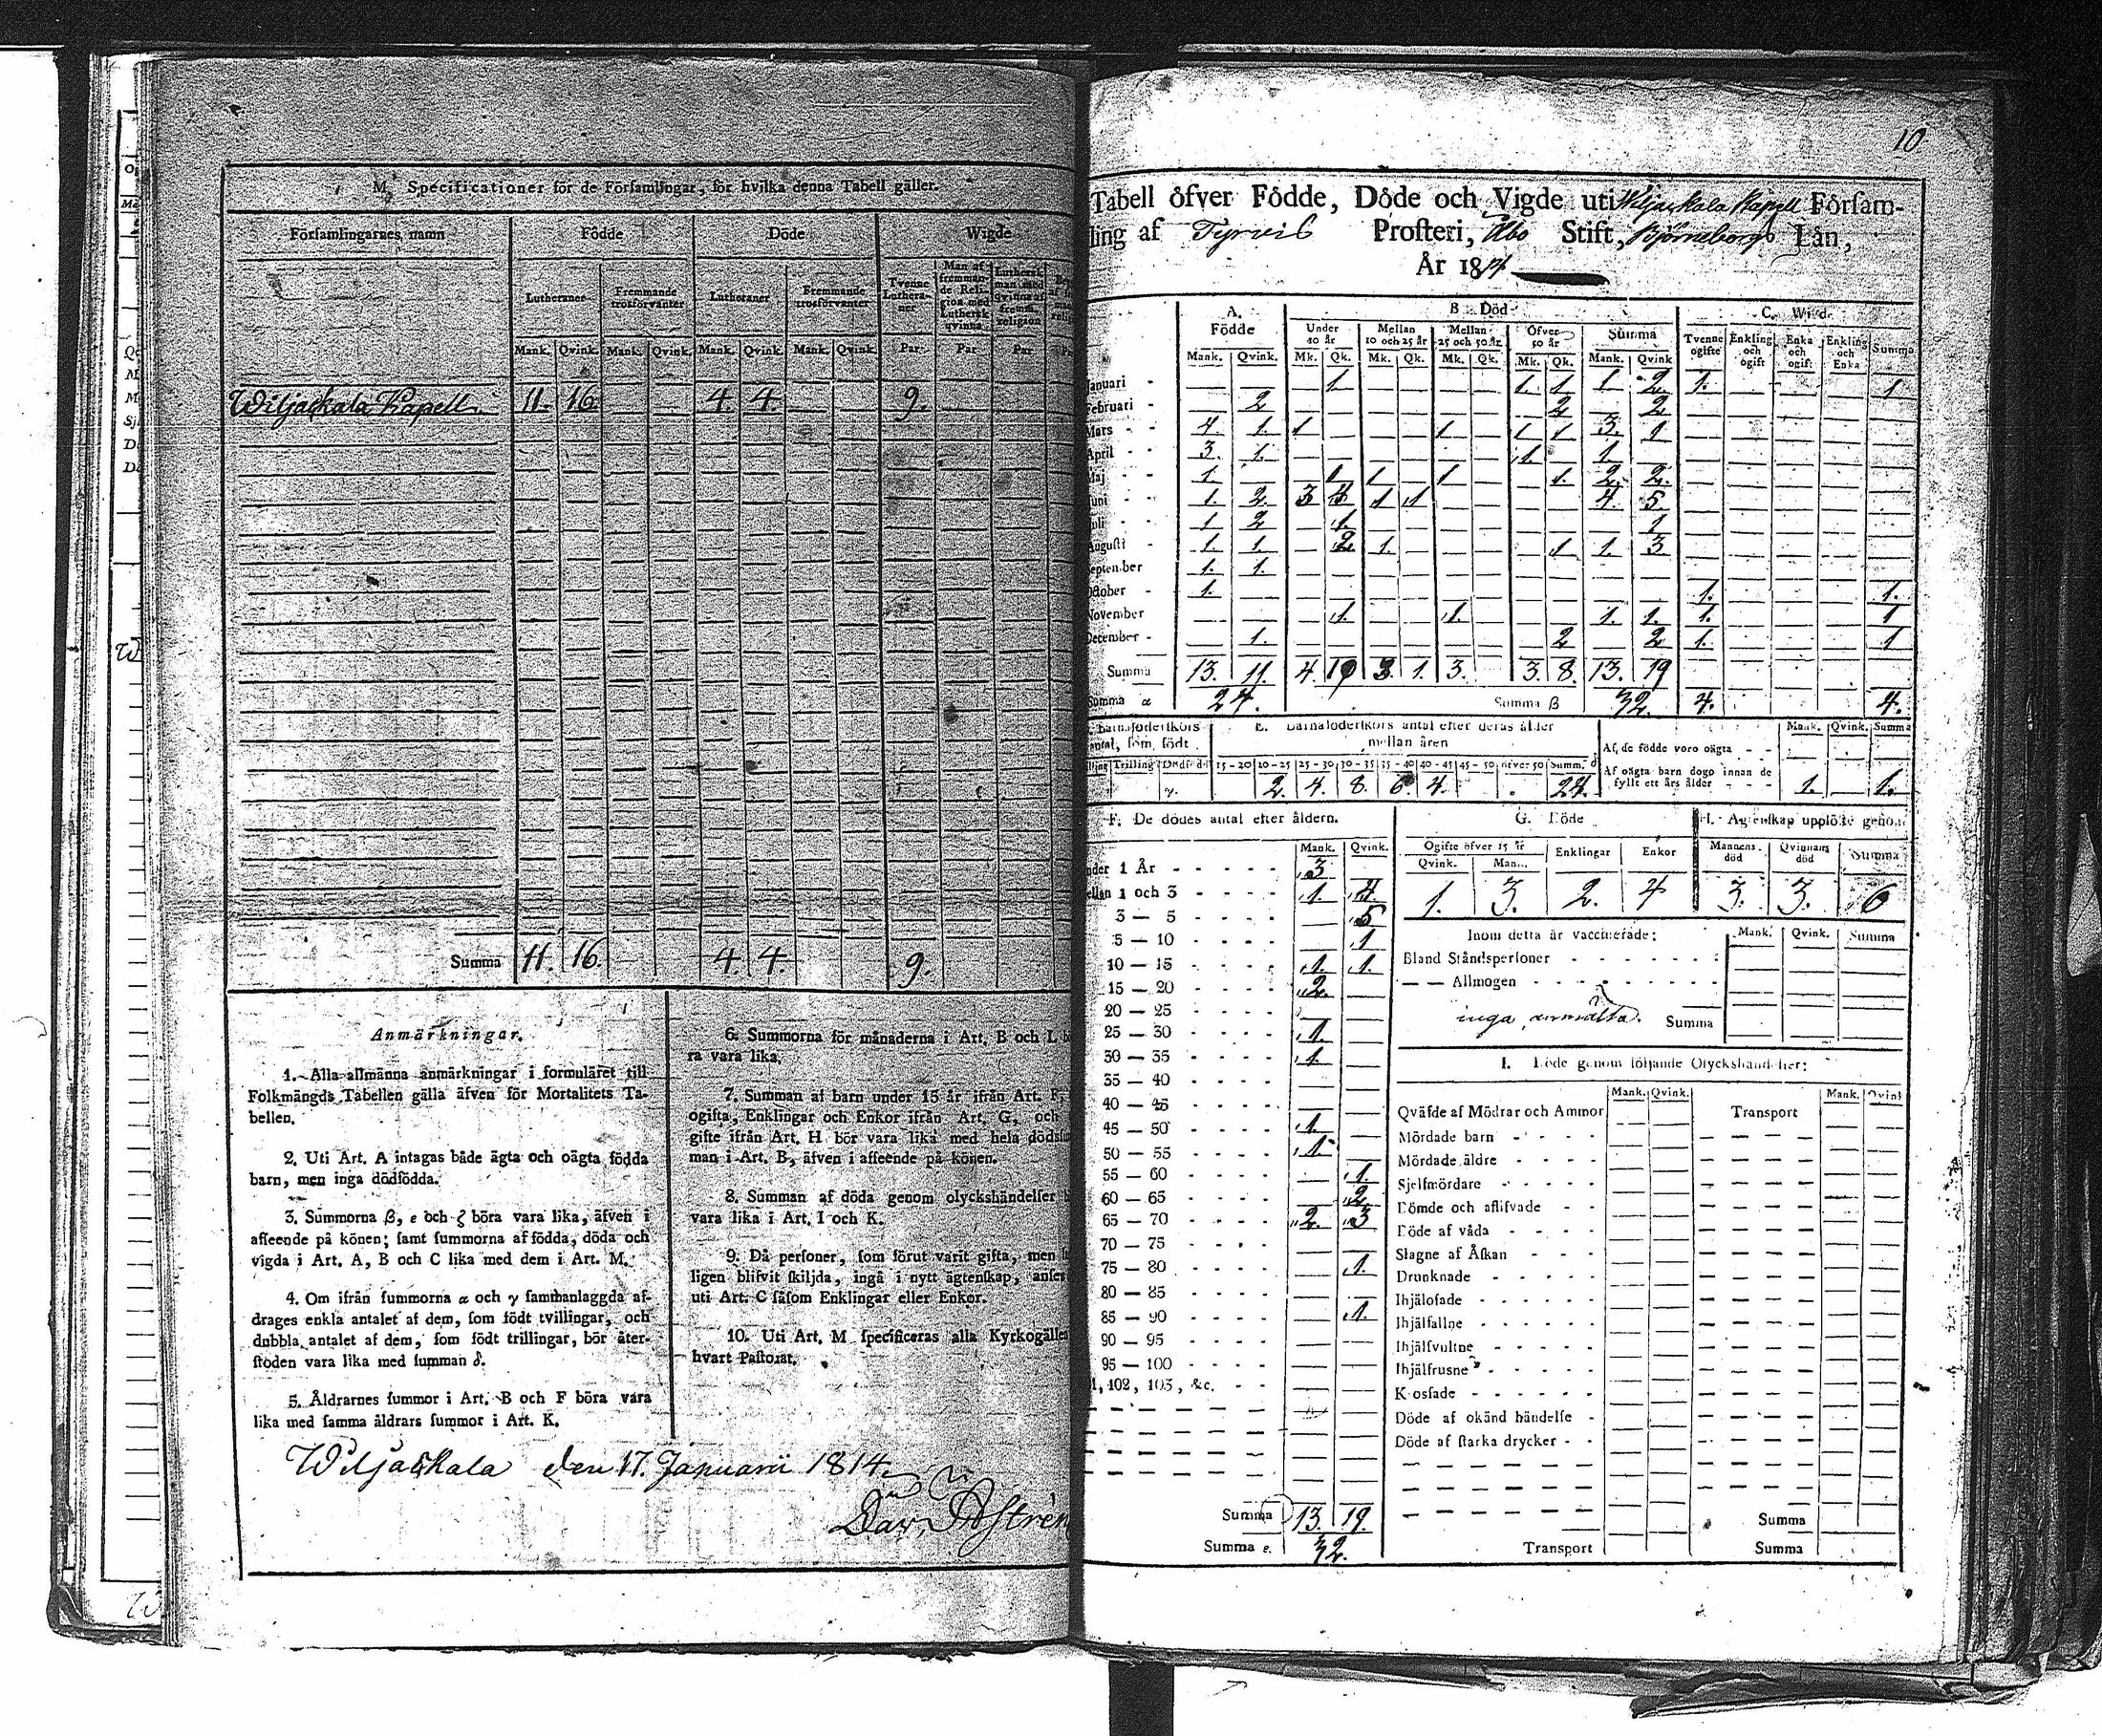 M. Specificationer för de Församlingar, för hvilka denna Tabell gäller.
Församlingarnes namn Födde Döde Wigde
Lutheraner Fremmande trosförvanter Lutheraner Fremmande trosförvanter Tvenne Lutheraner Man af fremmande Religion med Luthersk qvinna Luthersk man med qvinna af fremm. religion
Mank. Qvink. Mank. Qvink. Mank. Qvink. Mank. Qvink. Par Par Par
Wiljackala Kapell 11. 16. 4. 4. 9.
Summa 11. 16. 4. 4. 9.
Anmärkningar.
1. Alla allmänna anmärkningar i formuläret till
Folkmängds Tabellen gälla äfven för Mortalitets Ta-
bellen.
2. Uti Art. A intagas både ägta och oägta födda
barn, men inga dödfödda.
3. Summorna ß, e och ζ böra vara lika, äfven i
afseende på könen; samt summorna af födda, döda och
vigda i Art. A, B och C lika med dem i Art. M.
4. Om ifrån summorna α och γ sammanlaggda af-
drages enkla antalet af dem, som födt tvillingar, och
dubbla antalet af dem, som födt trillingar, bör åter-
stoden vara lika med summan δ.
5. Åldrarnes summor i Art. B och F böra vara
lika med samma åldrars summor i Art. K.
6. Summorna för månaderna i Art. B och L
ra vara lika.
7. Summan af barn under 15 år ifrån Art. F,
ogifta, Enklingar och Enkor ifrån Art. G, och
gifte ifrån Art. H bör vara lika med hela döds
man i Art. B, äfven i afseende på könen.
8. Summan af döda genom olyckshändelser
vara lika i Art. I och K.
9. Då personer, som förut varit gifta, men
ligen blifvit skiljda, ingå i nytt ägtenskap, anses
uti Art. C såsom Enklingar eller Enkor.
10. Uti Art. M specificeras alla Kyrkogälle
hvart Pastorat.
Wiljackala den 17. Januarii 1814.
Dav. Aströn
10
Tabell öfver Födde, Döde och Vigde uti Wiljackala Kapell Församling
ling af Tyrvis Prosteri, Åbo Stift, Björneborgs Län,
År 1814
A. Födde B. Död C. Wigd
Under 10 år Mellan 10 och 25 år Mellan 25 och 50 år Öfver 50 år Summa Tvenne ogifte Enkling och ogift Enka och ogift Enkling och Enka Summa
Mank. Qvink. Mk. Qk. Mk. Qk. Mk. Qk. Mk. Qk. Mank. Qvink
Januari 1 1 1 1 2 1. 1
Februari 2 2 2
Mars 4 1. 1 1 1 1 3. 1
April 3. 1. 1. 1.
Maj 1. 1 1 1 1. 2. 2.
Juni 1. 2. 3 1 1 4. 5
Juli 1 2 1. 1
Augusti 1. 1. 2 1. 1 1. 3
September 1. 1.
October 1. 1. 1.
November 1. 1. 1. 1. 1. 1
December 1. 2 2 1. 1
Summa 13. 11. 4. 10 3. 1. 3. 3. 8. 13. 19
Summa α 24. Summa ß 32. 4. 4.
Barnaföderskors antal, som födt
Trilling Dödfödd
γ.
E. Barnaföderskors antal efter deras ålder
mellan åren
15-20 20-25 25-30 30-35 35-40 40-45 45-50 öfver 50 Summ. δ
2. 4. 8. 6. 4. 24.
Mank. Qvink. Summa
Af de födde voro oägta
Af oägta barn dogo innan de
fyllt ett års ålder 1. 1.
F. De dödes antal efter åldern.
Mank. Qvink.
nder 1 År 3
ellan 1 och 3 1. 4.
3 — 5 5
5 — 10 1
10 — 15 1. 1.
15 — 20 2.
20 — 25
25 — 30 1.
30 — 35 1.
35 — 40
40 — 45
45 — 50 1.
50 — 55 1
55 — 60 1.
60 — 65 2
65 — 70 2. 3
70 — 75
75 — 80 1.
80 — 85
85 — 90 1.
90 — 95
95 — 100
1, 102, 103, &c.
Summa 13. 19.
Summa e. 32.
G. Döde
Ogifte öfver 15 år Enklingar Enkor
Qvink. Man.
1. 3. 2. 4
H. Ägtenskap uplöste genom
Mannens död Qvinnans död Summa
3. 3. 6
Inom detta år vaccinerade: Mank. Qvink. Summa
Bland Ståndspersoner
— — Allmogen
inga anmälta. Summa
I. Döde genom följande Olyckshändelser:
Mank. Qvink. Mank. Qvink
Qväfde af Mödrar och Ammor Transport
Mördade barn
Mördade äldre
Sjelfmördare
Dömde och aflifvade
Döde af våda
Slagne af Åskan
Drunknade
Ihjälosade
Ihjälfallne
Ihjälsvultne
Ihjälfrusne
Krossade
Döde af okänd händelse
Döde af starka drycker
Summa
Transport Summa